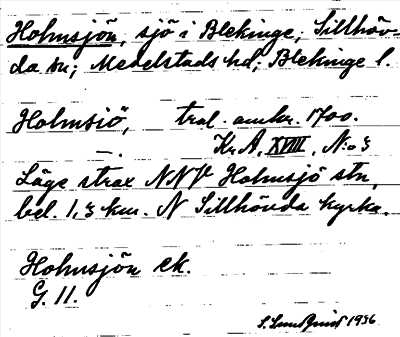 Holmsjön, sjö i Blekinge, Sillhöv-
da sn; Medelstads hd; Blekinge l.
Holmsiö, trol. omkr. 1700.
Kr A, XVIII, N:o 3
Läge strax NNV Holmsjö stn,
bel. 1,3 km. N Sillhövda kyrka.
Holmsjön ek.
G. 11.
S. Lundquist 1936